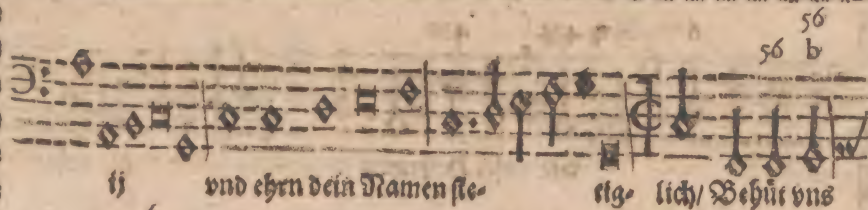 56
56 b
ij vnd ehrn dein Namen ste- tig- lich/ Behüt vns